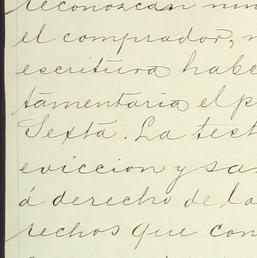 reconozcan nin
el comprador,
escritura habe
tamentaria el p
Sexta. La test
eviccion y sa
á derecho de la
rechos que con